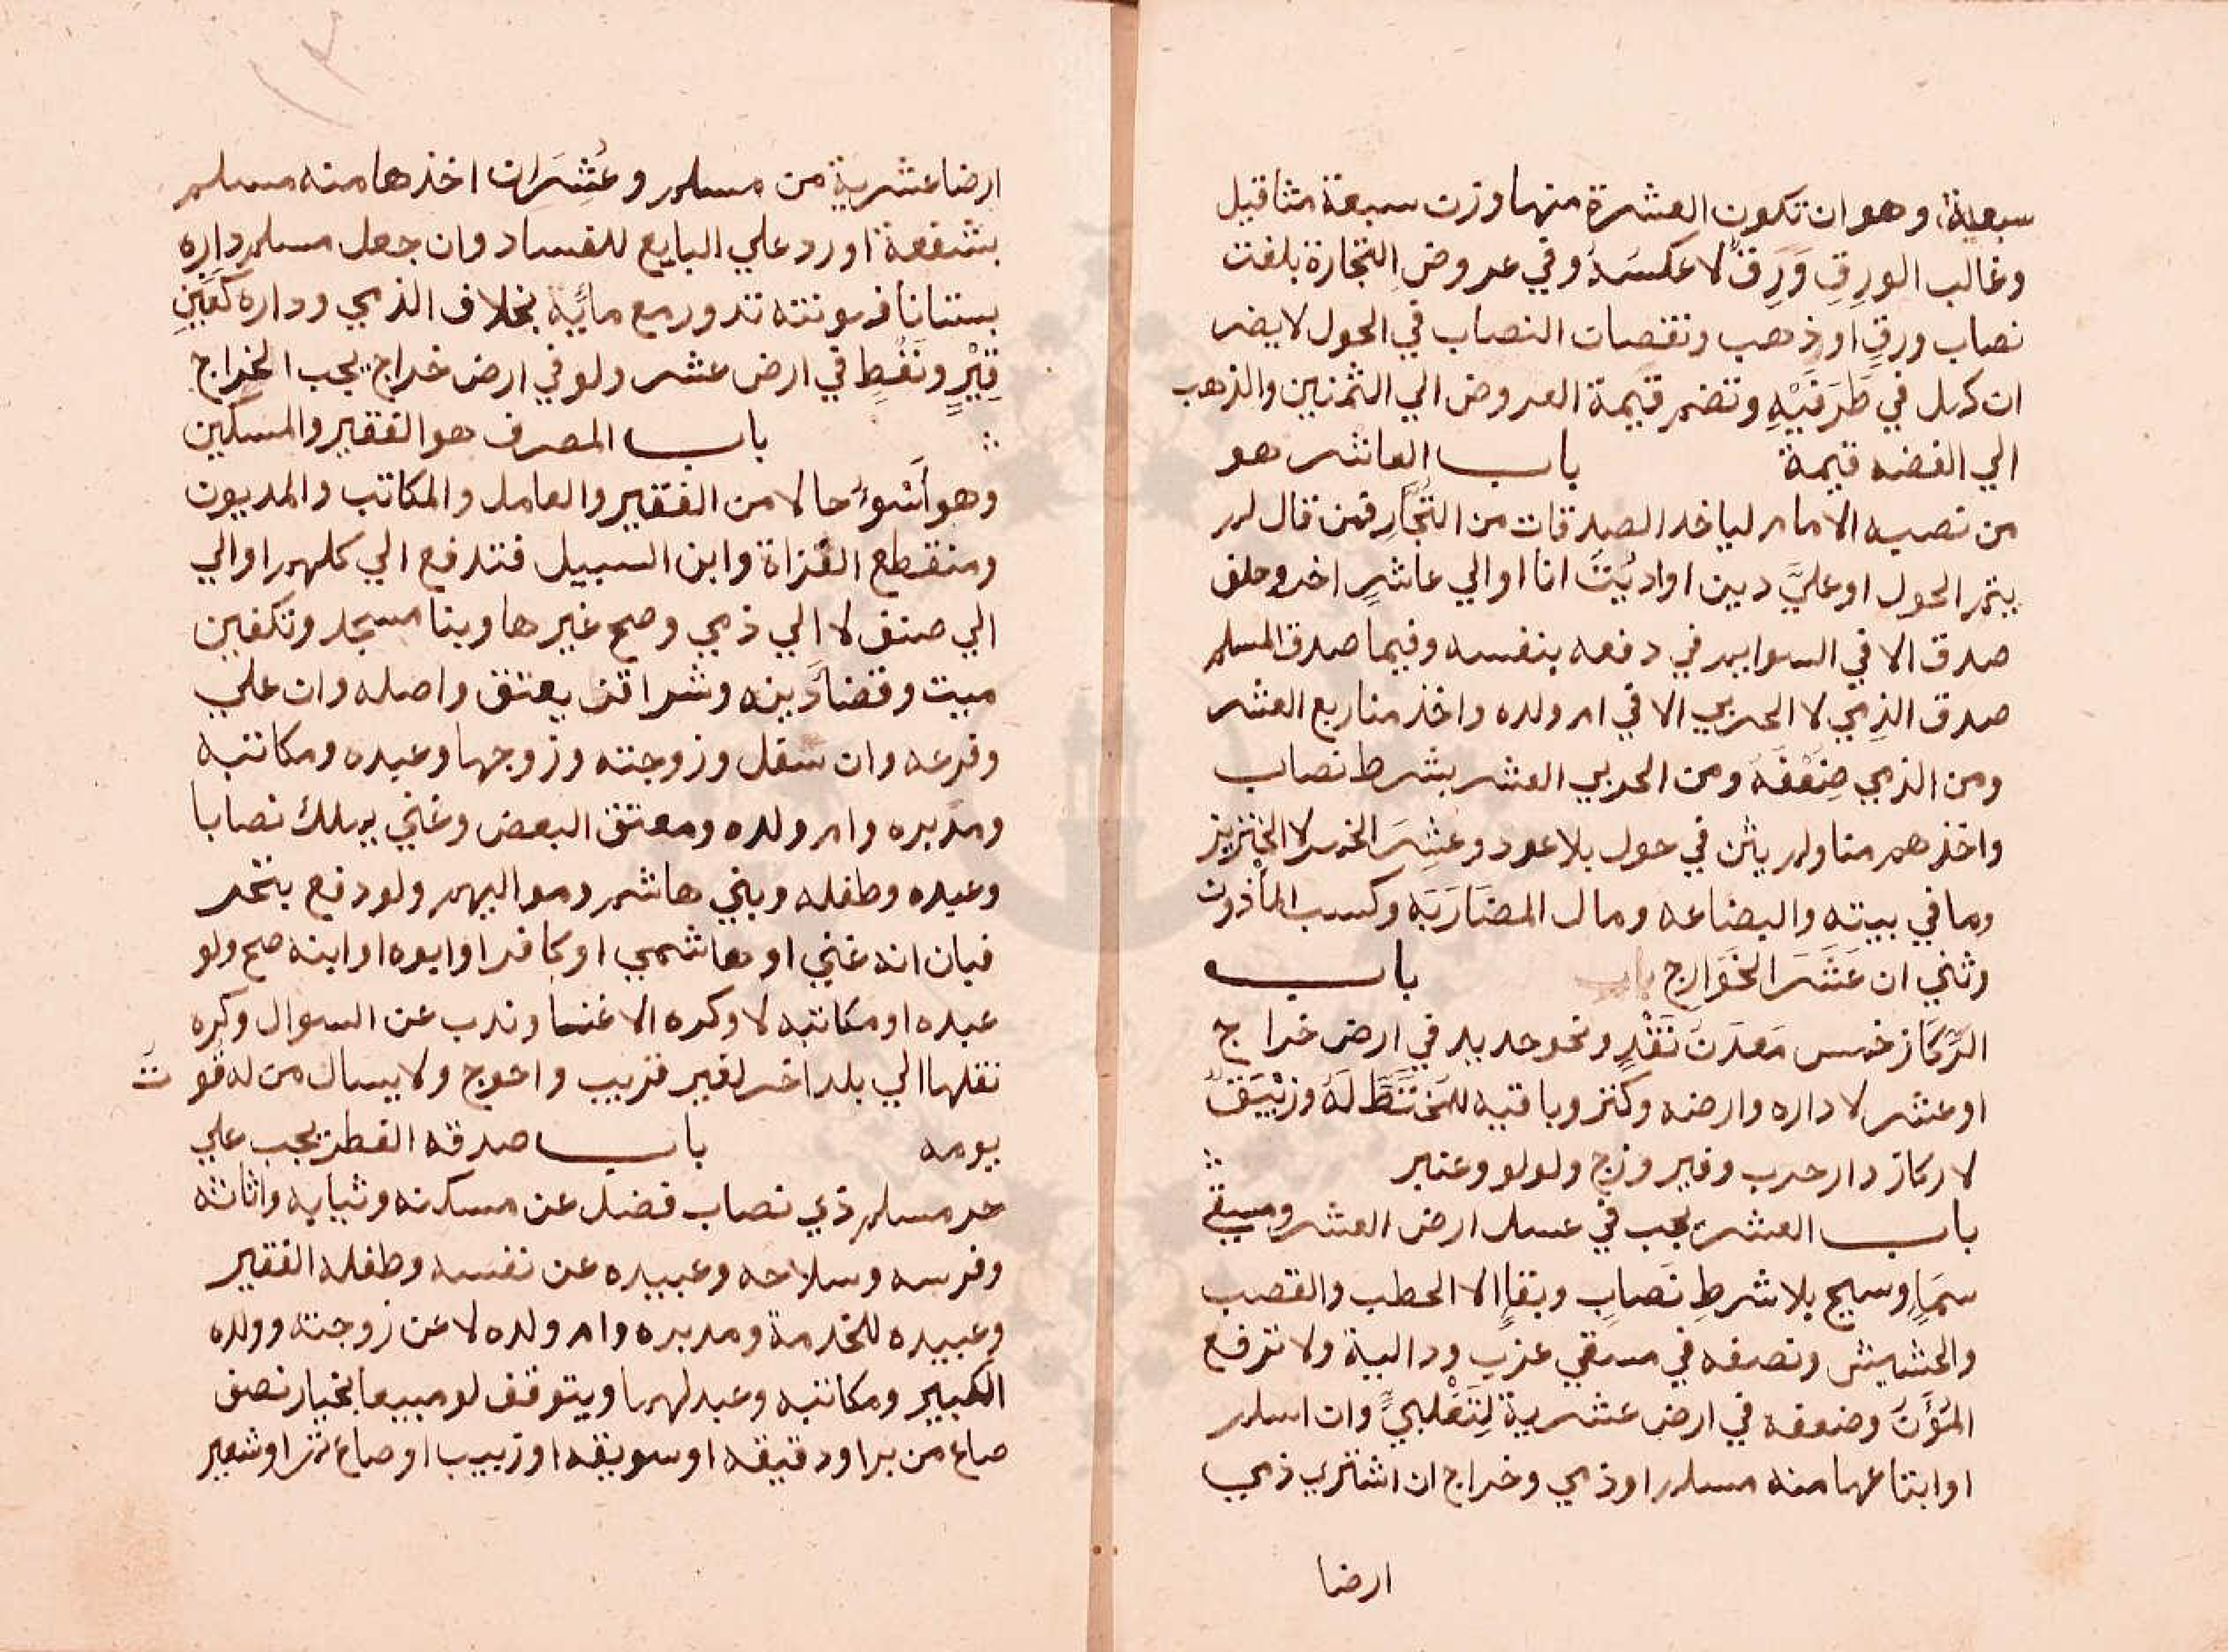 سبعة، وهو ان تكون العشرة منها وزن سبعة مثاقيل
وغالب الورِقِ وَرِقٌ لا عكسَهُ وفي عروض التجارة بلغت
نصاب ورقٍ او ذهب ونقصان النصاب في الحول لا يضر
ان كمل في طَرَفَيْهِ وتضم قيمة العروض الي الثمنين والذهب
الي الفضه قيمة باب العاشر هو
من نصبه الامام لياخد الصدقات من التُّجَّارِ فمن قال لم
يتم الحول او عليَّ دين او اديْتُ انا او الي عاشرٍ اخر وحلف
صدق الا في السوايم في دفعه بنفسه وفيما صدق المسلم
صدق الذِمّي لا الحربي الا في ام ولده واخذ منا ربع العشر
ومن الذمي ضِعْفَهُ ومن الحربي العشر بشرط نصاب
واخذهم منا ولم يثن في حول بلا عود وعُشِرَ الخمر لا الخنزير
وما في بيته والبضاعه ومال المضَارَبَه وكسب المأذون
وثني ان عَشَرَ الخَوَارِج باب باب
الرِّكَاز خمس مَعدَنَ نَقْدٍ ونحو حديد في ارض خراج
او عشر لا داره وارضه وكنز وباقيه للمختَطِّ لَهُ وزئيَقٌ
لا ركاز دار حرب وفيروزج ولولو وعنبر
باب العشر يجب في عسل ارض العشر ومسقي
سمَاءٍ وسيح بلا شرطِ نَصابٍ وبقاءٍ الا الحطب والقصب
والحشيش ونصفه في مسقي غرب ودالية ولا ترفع
المُؤَنُ وضعفه في ارض عشرية لِتَغْلبيٍّ وان اسلم
او ابتاعها منه مسلم او ذمي وخراج ان اشتري ذمي
ارضا
ارضا عشرية من مسلم وعُشِرَ ان اخذها منه مسلم
بشفعة او رد علي البايع للفساد وان جعل مسلم داره
بستانا فمونته تدور مع مائِهِ بخلاف الذمي وداره كعَينِ
قِيْرٍ ونَفْطٍ في ارض عشر ولو في ارض خراج يجب الخراج
باب المصرف هو الفقير والمسكين
وهو أَسْوَءُ حالا من الفقير والعامل والمكاتب والمديون
ومنقطع الغُزاة وابن السبيل فتدفع الي كلهم او الي
الي صنف لا الي ذمي وصح غيرها وبنا مسجد وتكفين
ميت وقضاَ دينه وشرا قن يعتق واصله وان علي
وفرعه وان سفل وزوجته وزوجها وعبده ومكاتبه
ومدَبره وام ولده ومعتق البعض وغني يملك نصابا
وعبده وطفله وبني هاشم ومواليهم ولو دفع بتحر
فبان انه غني او هاشمي او كافر او ابوه او ابنه صح ولو
عبده او مكاتبه لا وكره الاغنا وندب عن السوال وكره
نقلها الي بلد اخر لغير قريب واحوج ولا يسال من له قوتَ
يومه باب صدقه الفطر يجب علي
حر مسلم ذي نصاب فضل عن مسكنه وثيابه واثاثه
وفرسه وسلاحه وعبيده عن نفسه وطفله الفقير
وعبيده للخدمة ومدبره وام ولده لا عن زوجته وولده
الكبير ومكاتبه وعبد لهما ويتوقف لو مبيعا بخيار نصف
صاع من بر او دقيقه او سويقه او زبيب او صاع تمر او شعير